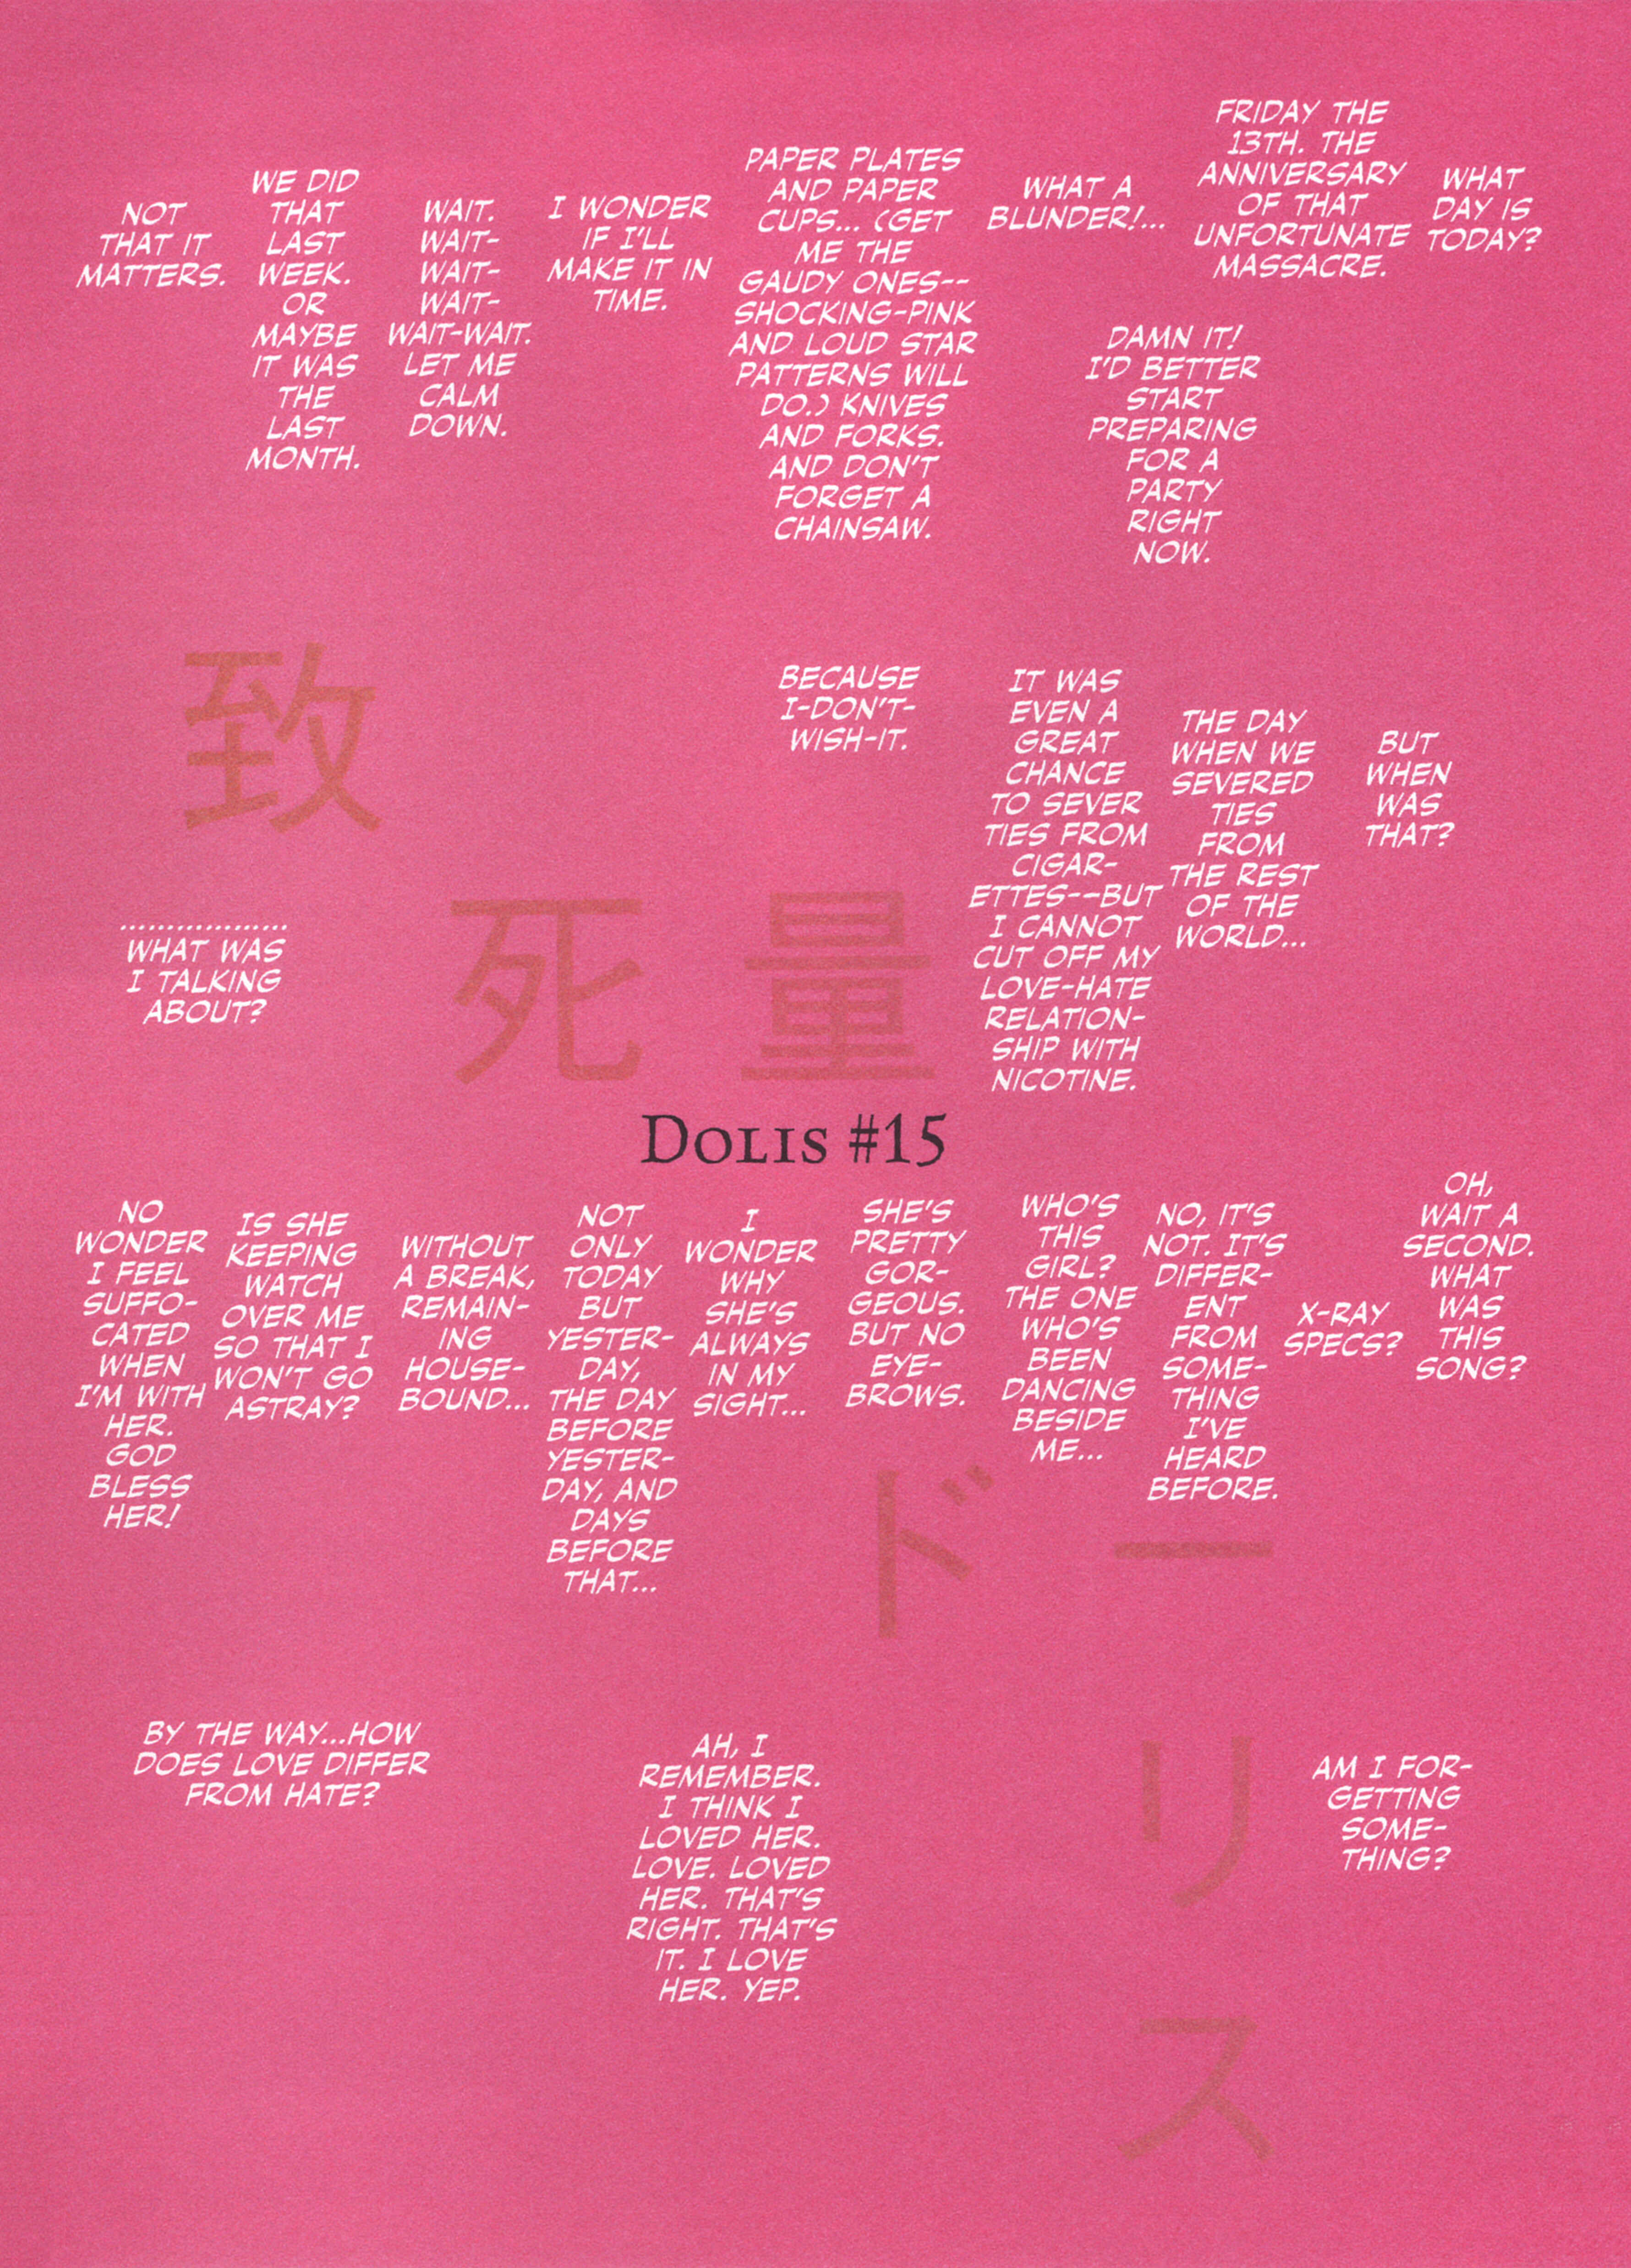 WHAT
DAY IS
TODAY?
FRIDAY THE
13TH. THE
ANNIVERSARY
OF THAT
UNFORTUNATE
MASSACRE.
DAMN IT!
I'D BETTER
START
PREPARING
FOR A
PARTY
RIGHT
NOW.
WHAT A
BLUNDER!...
PAPER PLATES
AND PAPER
CUPS... (GET
ME THE
GAUDY ONES--
SHOCKING-PINK
AND LOUD STAR
PATTERNS WILL
DO.) KNIVES
AND FORKS.
AND DON'T
FORGET A
CHAINSAW.
I WONDER
IF I'LL
MAKE IT IN
TIME.
WAIT.
WAIT-
WAIT-
WAIT-
WAIT-WAIT.
LET ME
CALM
DOWN.
WE DID
THAT
LAST
WEEK.
OR
MAYBE
IT WAS
THE
LAST
MONTH.
NOT
THAT IT
MATTERS.
BUT
WHEN
WAS
THAT?
THE DAY
WHEN WE
SEVERED
TIES
FROM
THE REST
OF THE
WORLD...
IT WAS
EVEN A
GREAT
CHANCE
TO SEVER
TIES FROM
CIGAR-
ETTES--BUT
I CANNOT
CUT OFF MY
LOVE-HATE
RELATION-
SHIP WITH
NICOTINE.
BECAUSE
I-DON'T-
WISH-IT.
..................
WHAT WAS
I TALKING
ABOUT?
致
死量
DOLIS #15
OH,
WAIT A
SECOND.
WHAT
WAS
THIS
SONG?
X-RAY
SPECS?
NO, IT'S
NOT. IT'S
DIFFER-
ENT
FROM
SOME-
THING
I'VE
HEARD
BEFORE.
WHO'S
THIS
GIRL?
THE ONE
WHO'S
BEEN
DANCING
BESIDE
ME...
SHE'S
PRETTY
GOR-
GEOUS.
BUT NO
EYE-
BROWS.
I
WONDER
WHY
SHE'S
ALWAYS
IN MY
SIGHT...
NOT
ONLY
TODAY
BUT
YESTER-
DAY,
THE DAY
BEFORE
YESTER-
DAY, AND
DAYS
BEFORE
THAT...
WITHOUT
A BREAK,
REMAIN-
ING
HOUSE-
BOUND...
IS SHE
KEEPING
WATCH
OVER ME
SO THAT I
WON'T GO
ASTRAY?
NO
WONDER
I FEEL
SUFFO-
CATED
WHEN
I'M WITH
HER.
GOD
BLESS
HER!
ドー
リ
ス
AM I FOR-
GETTING
SOME-
THING?
AH, I
REMEMBER.
I THINK I
LOVED HER.
LOVE. LOVED
HER. THAT'S
RIGHT. THAT'S
IT. I LOVE
HER. YEP.
BY THE WAY...HOW
DOES LOVE DIFFER
FROM HATE?